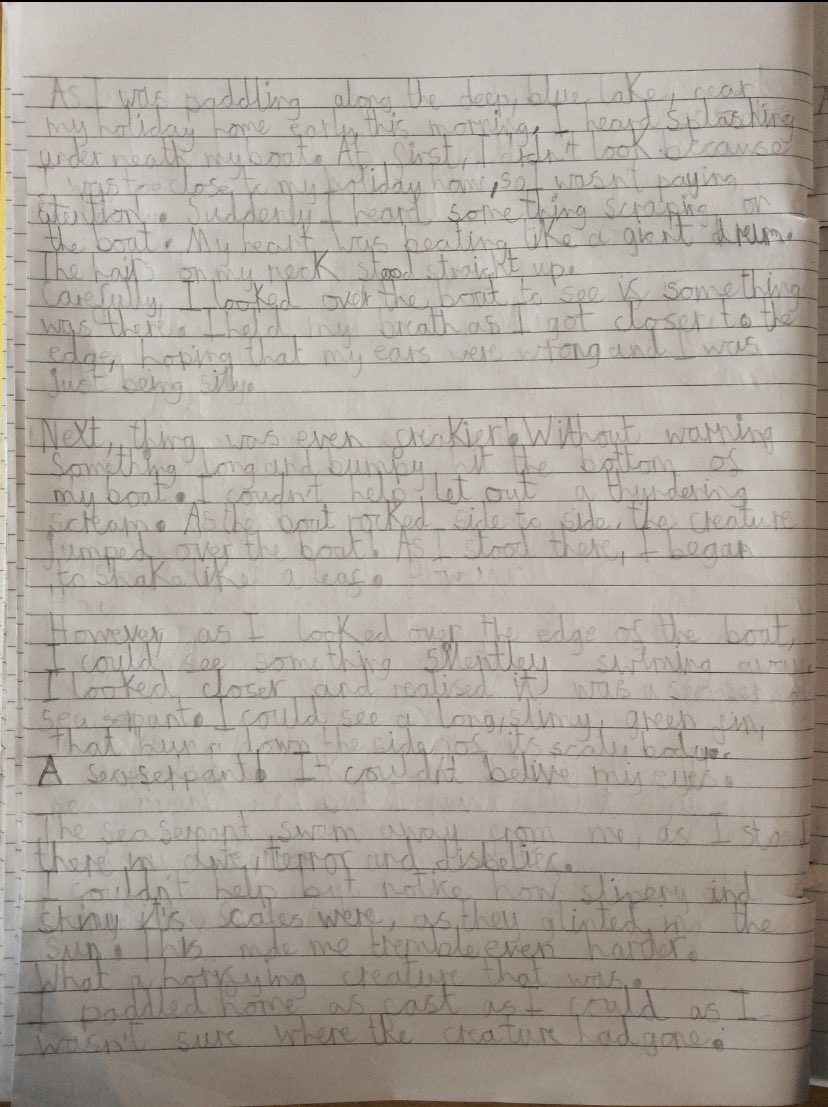 As I was paddling along the deep, blue, lake, near
my holiday home early this morning, I heard splashing
underneath my boat. At first, I didn't look because
I was too close to my holiday home, so I wasn't paying
atention. Suddenly I heard something scraping on
the boat. My heart was beating like a giant drum.
The hairs on my neck stood straight up.
Carefully, I looked over the boat to see if something
was there. I held my breath as I got closer to the
edge, hoping that my ears were wrong and I was
just being silly.
Next, thing was even freakier! Without warning
something long and bumpy hit the bottom of
my boat. I coudn't help let out a thundering
scream. As the boat rocked side to side, the creature
jumped over the boat. As I stood there, I began
to shake like a leaf.
However, as I looked over the edge of the boat,
I could see something silentley swiming away.
I looked closer and realised it was a
sea serpant. I could see a long, slimy, green fin,
that hung down the side of its scaly body.
A sea serpant! I couldn't belive my eyes.
The sea Serpant swam away from me, as I stood
there in awe, terror and disbelief.
I couldn't help but notice how slipery and
shiny it's scales were, as they glinted in the
sun. This made me tremble even harder.
What a horrifying creature that was.
I paddled home as fast as I could as I
wasn't sure where the creature had gone.